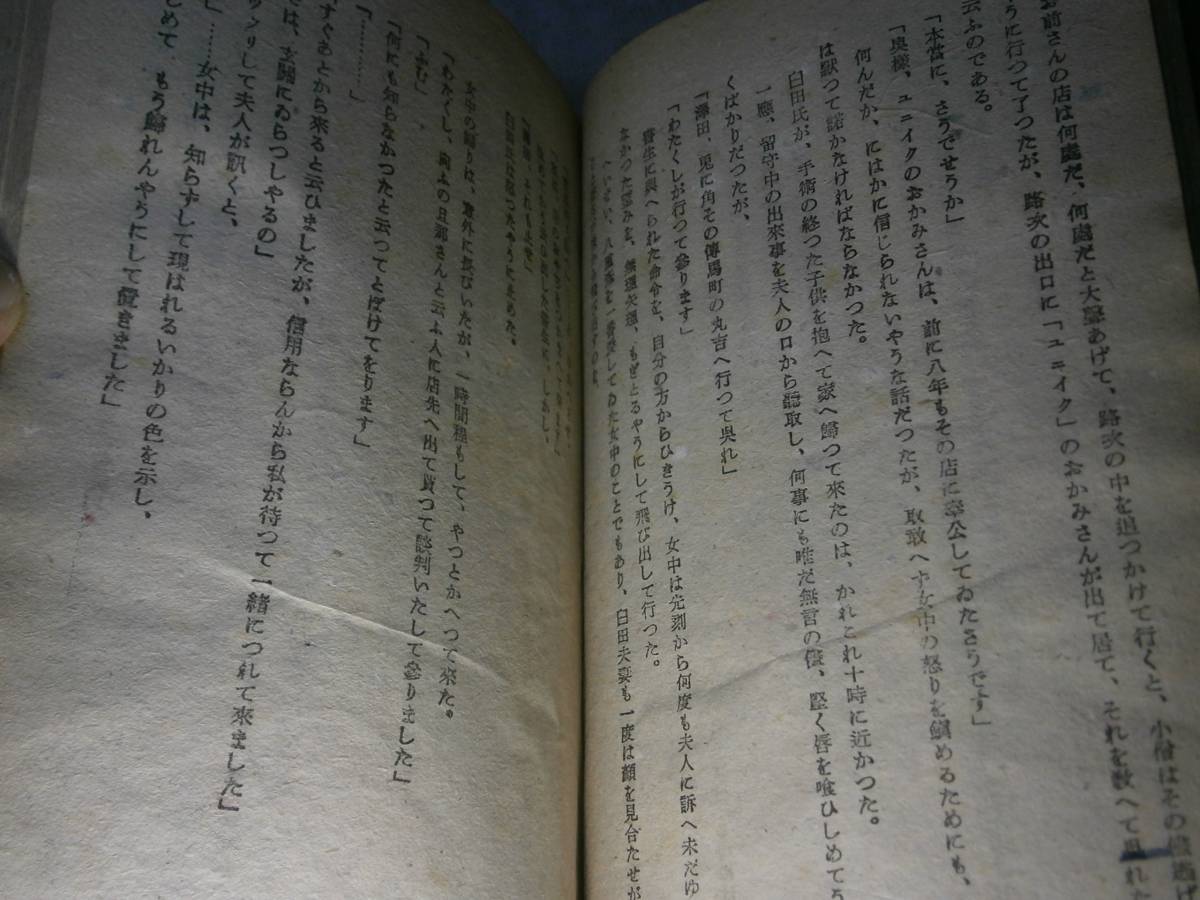 お前さんの店は何處だ、何處だと大聲あげて、路次の中を追つかけて行くと、小僧はその儘逃げ
うに行つて了つたが、路次の出口に「ユニイク」のおかみさんが出て居て、それを敎へて呉れた
云ふのである。
「本當に、さうでせうか」
「奥樣、ユニイクのおかみさんは、前に八年もその店に奉公してゐたさうです」
何んだか、にはかに信じられないやうな話だつたが、取敢へず女中の怒りを鎭めるためにも、
は默つて諾かなければならなかつた。
臼田氏が、手術の終つた子供を抱へて家へ歸つて來たのは、かれこれ十時に近かつた。
一應、留守中の出來事を夫人の口から聽取し、何事にも唯だ無言の儘、堅く唇を喰ひしめてう
くばかりだつたが、
「澤田、兎に角その傳馬町の丸吉へ行つて呉れ」
「わたくしが行つて參ります」
書生に與へられた命令を、自分の方からひきうけ、女中は先刻から何度も夫人に訴へ未だゆ
なかつた望みを、無理矢理、もぎとるやうにして飛び出して行つた。
へいぜい、八重子を一番愛してゐた女中のことでもあり、臼田夫妻も一度は顏を見合たせが
臼田氏は怒つたやうに止めた。
女中の歸りは、意外に長びいたが、一時間程もして、やつとかへつて來た。
「わたくし、向ふの旦那さんと云ふ人に店先へ出て貰つて談判いたして參りました」
「ふむ」
「何にも知らなかつたと云つてとぼけてをります」
「…………」
すぐあとから來ると云ひましたが、信用ならんから私が待つて一緒につれて來ました」
は、玄關にゐらつしやるの」
クリして夫人が訊くと、
」……女中は、知らずして現はれるいかりの色を示し、
じめて　もう歸れんやうにして置きました」